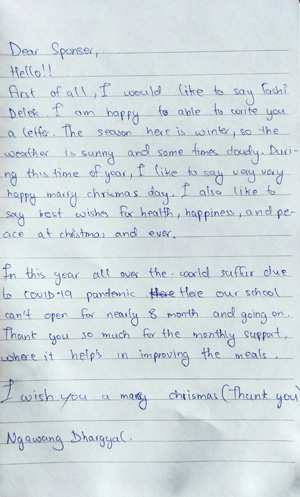 Dear Sponser,
Hello!!
First of all, I would like to say Tashi
Delek. I am happy to able to write you
a letter. The season here is winter, so the
weather is sunny and some times cloudy. Duri-
ng this time of year, I like to say very very
happy marry chrismas day. I also like to
say best wishes for health, happiness, and pe-
ace at christmas and ever.
In this year all over the world suffer due
to COVID-19 pandemic Here our school
can't open for nearly 8 month and going on.
Thank you so much for the monthly support,
where it help's in improving the meals.
I wish you a marry chrismas (Thank you)
Ngawang Dhargyal.